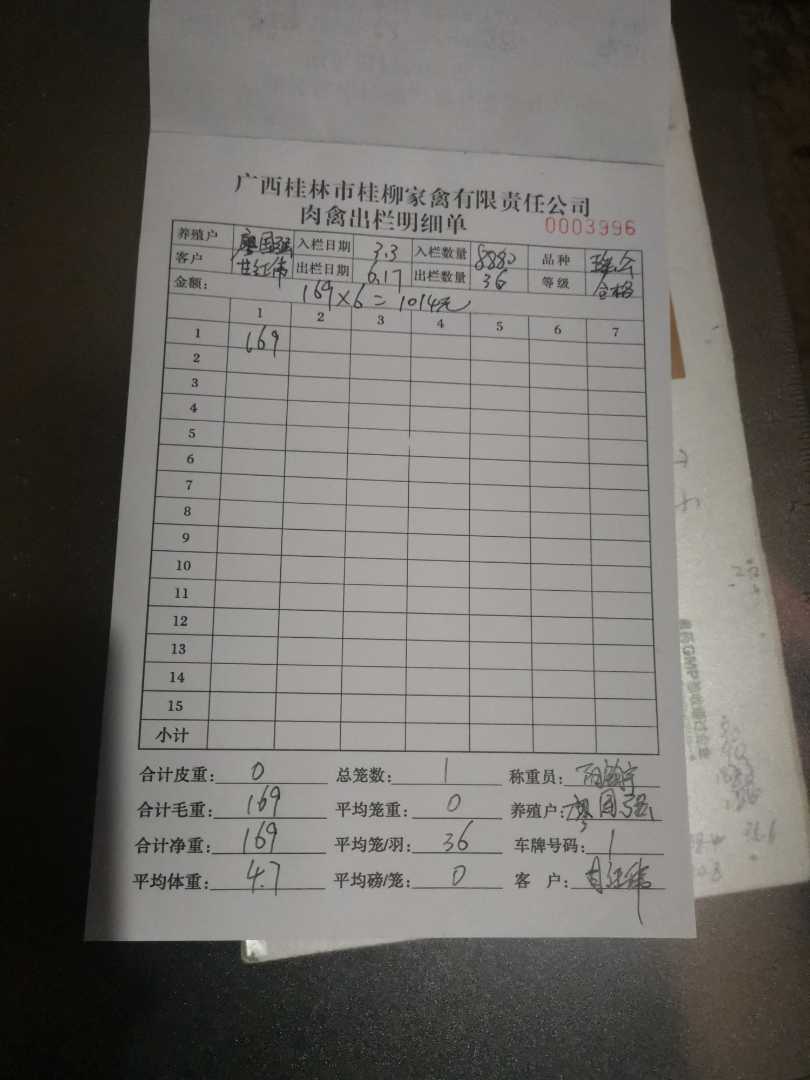 广西桂林市桂柳家禽有限责任公司
肉禽出栏明细单 0003996
养殖户 廖国强 入栏日期 3.3 入栏数量 8880 品种
客户 甘红伟 出栏日期 6.17 出栏数量 36 等级 合格
金额: 169×6=1014元
1 2 3 4 5 6 7
1 169
2
3
4
5
6
7
8
9
10
11
12
13
14
15
小计
合计皮重: 0 总笼数: 1 称重员:
合计毛重: 169 平均笼重: 0 养殖户: 廖国强
合计净重: 169 平均笼/羽: 36 车牌号码: 1
平均体重: 4.7 平均磅/笼: 0 客 户: 甘红伟